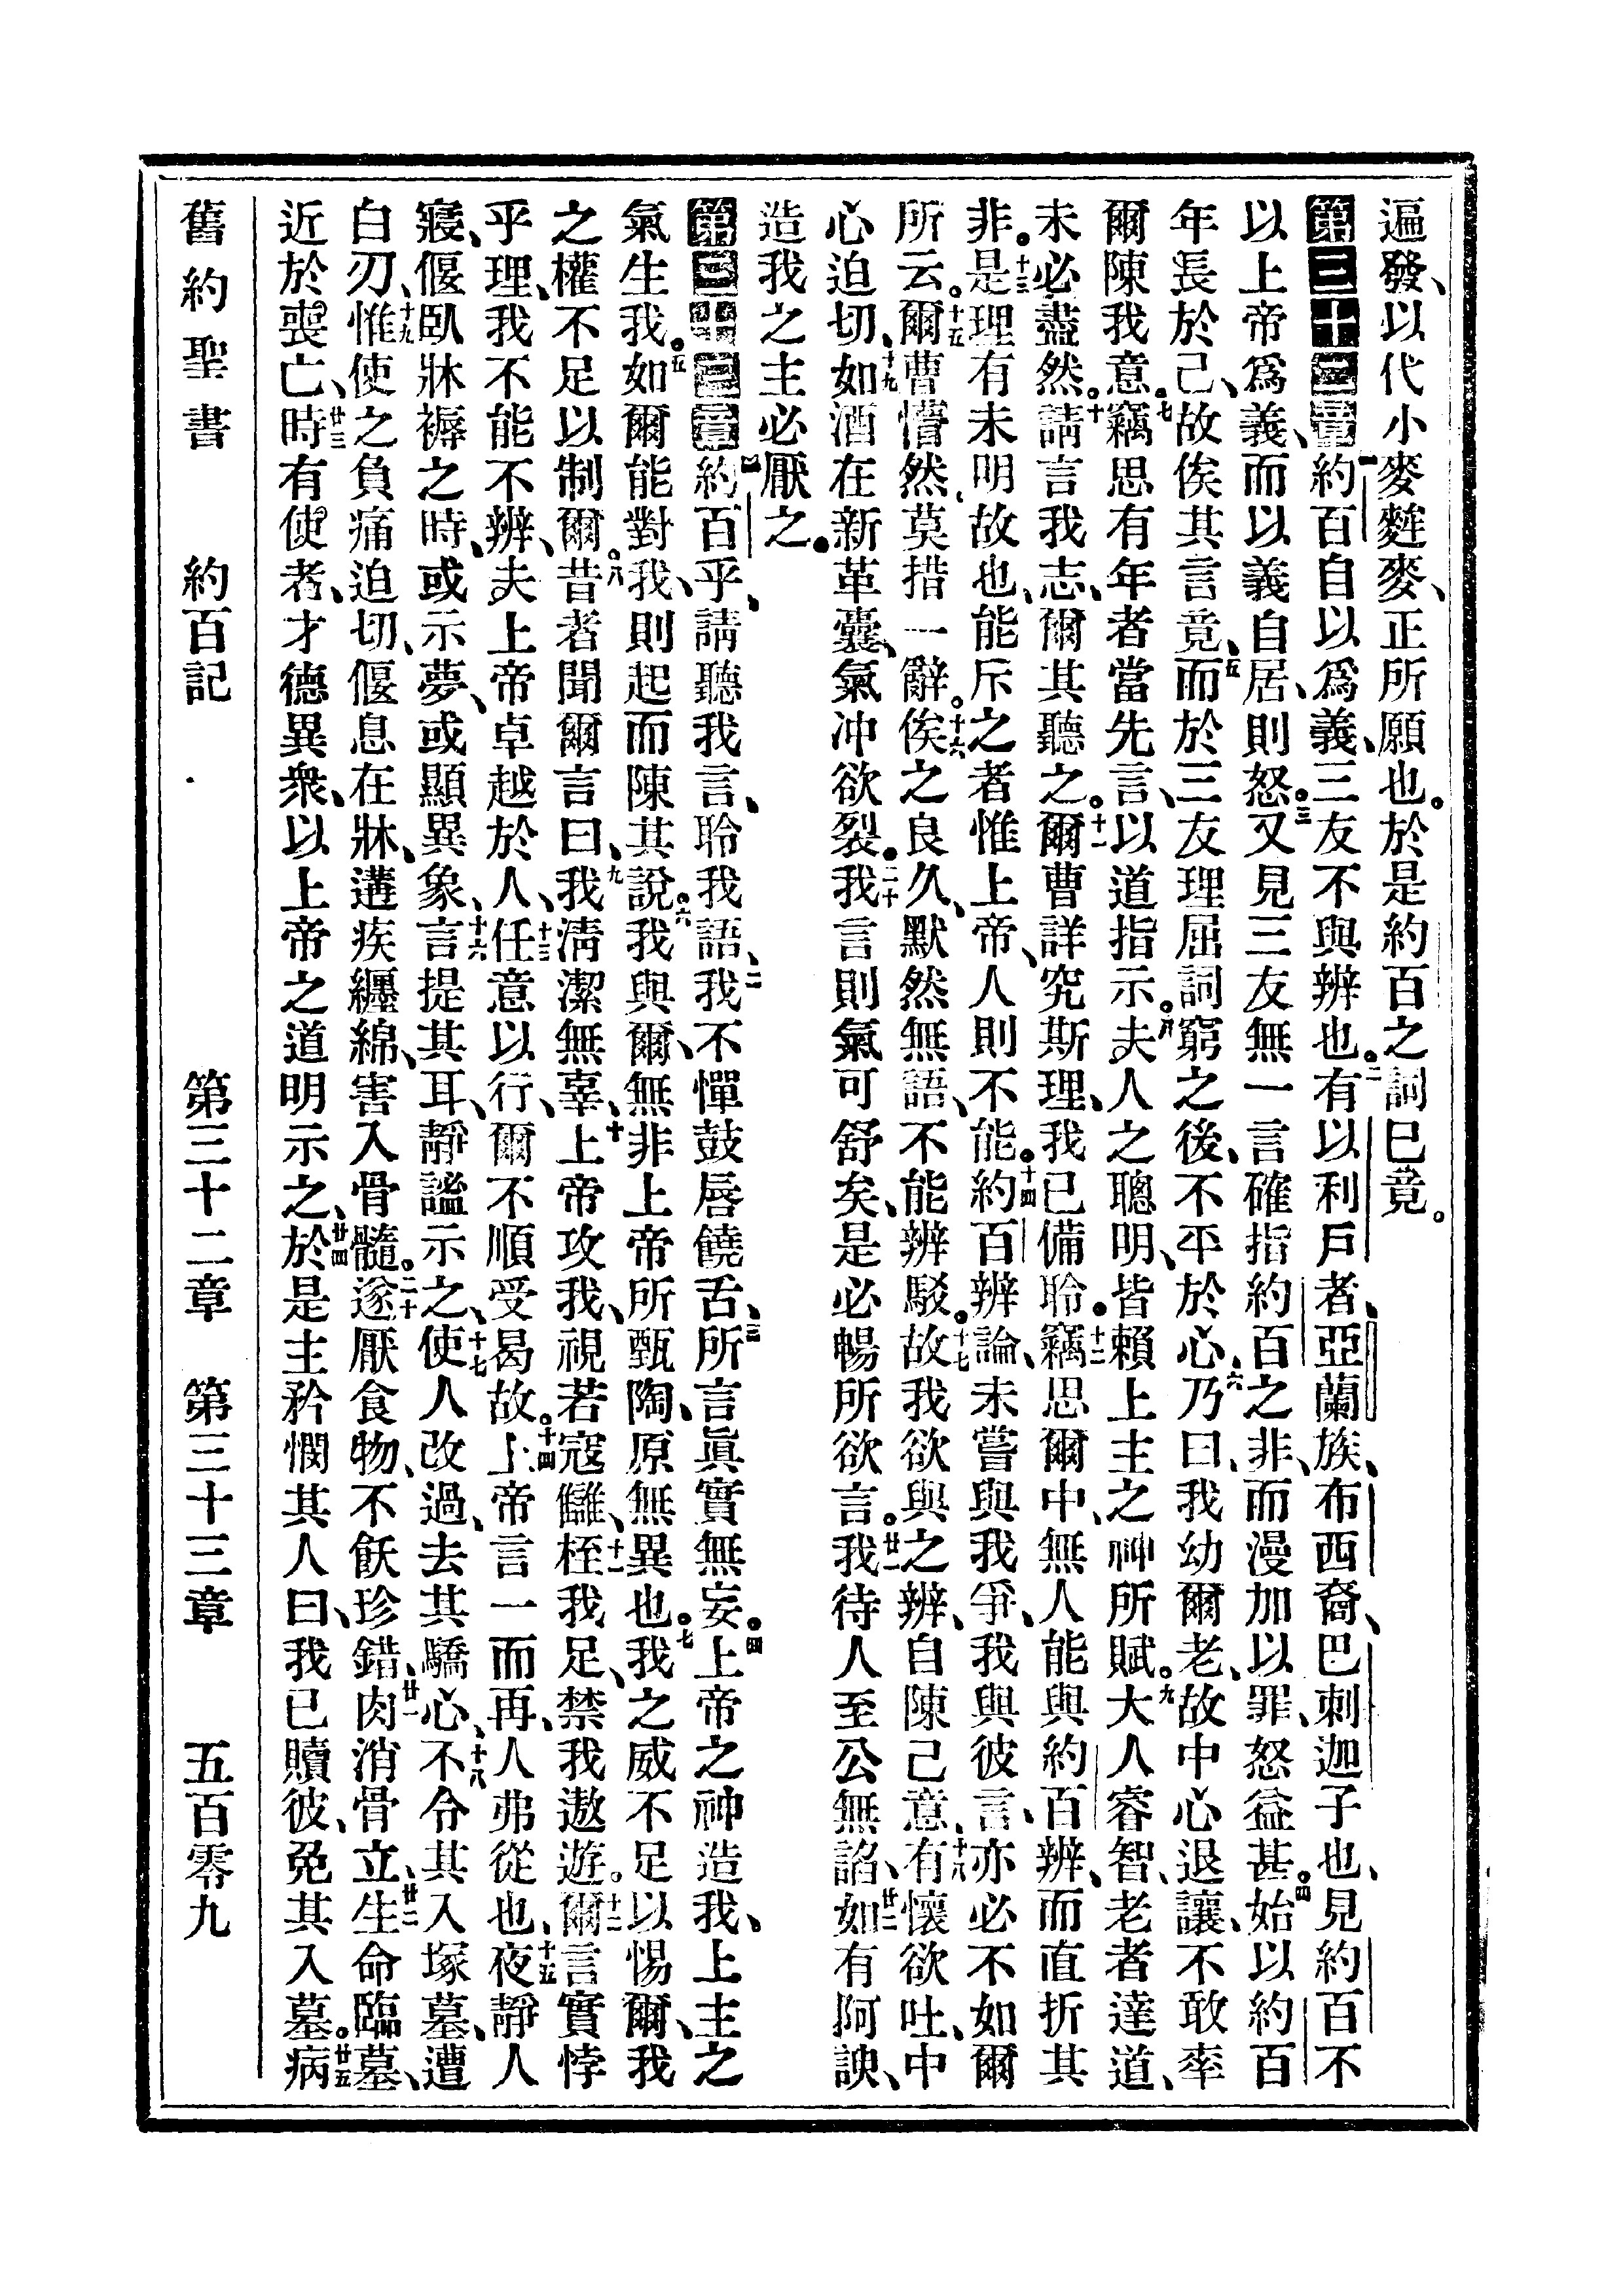 遍發、以代小麥麰麥、正所願也。於是約百之詞已竟。
第三十二章 一約百自以爲義、三友不與辨也。二有以利戶者、亞蘭族、布西裔、巴刺迦子也、見約百不
以上帝爲義、而以義自居、則怒。三又見三友無一言確指約百之非、而漫加以罪、怒益甚。四始以約百
年長於己、故俟其言竟、五而於三友理屈詞窮之後、不平於心、六乃曰、我幼爾老、故中心退讓、不敢率
爾陳我意。七竊思有年者當先言、以道指示。八夫人之聰明、皆賴上主之神所賦。九大人睿智、老者達道、
未必盡然。十請言我志、爾其聽之。十一爾曹詳究斯理、我已備聆。十二竊思爾中、無人能與約百辨、而直折其
非。十三是理有未明故也、能斥之者惟上帝、人則不能。十四約百辨論、未嘗與我爭、我與彼言、亦必不如爾
所云。十五爾曹懵然、莫措一辭。十六俟之良久、默然無語、不能辨駁。十七故我欲與之辨、自陳己意、十八有懷欲吐、中
心迫切、十九如酒在新革囊、氣冲欲裂。二十我言則氣可舒矣、是必暢所欲言。廿一我待人至公無諂、廿二如有阿諛、
造我之主必厭之。
第三十三章 一約百乎、請聽我言、聆我語、二我不憚鼓唇饒舌、三所言眞實無妄。四上帝之神造我、上主之
氣生我。五如爾能對我、則起而陳其說。六我與爾、無非上帝所甄陶、原無異也。七我之威不足以惕爾、我
之權不足以制爾。八昔者聞爾言曰、九我淸潔無辜、十上帝攻我、視若寇讎、十一桎我足、禁我遨遊。十二爾言實悖
乎理、我不能不辨、夫上帝卓越於人、十三任意以行、爾不順受曷故。十四上帝言一而再、人弗從也、十五夜靜人
寢、偃臥牀褥之時、或示夢、或顯異象、十六言提其耳、靜謐示之、十七使人改過、去其驕心、十八不令其入塚墓、遭
白刃、十九惟使之負痛迫切、偃息在牀、遘疾纒綿、害入骨髓。二十遂厭食物、不飫珍錯、廿一肉消骨立、廿二生命臨墓、
近於喪亡、廿三時有使者、才德異衆、以上帝之道明示之、廿四於是主矜憫其人曰、我已贖彼、免其入墓。廿五病
舊約聖書 約百記 第三十二章 第三十三章 五百零九